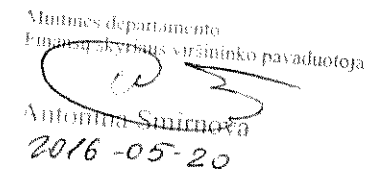 Muitinės departamento
Finansų skyriaus viršininko pavaduotoja
Antonina Smirnova
2016-05-20